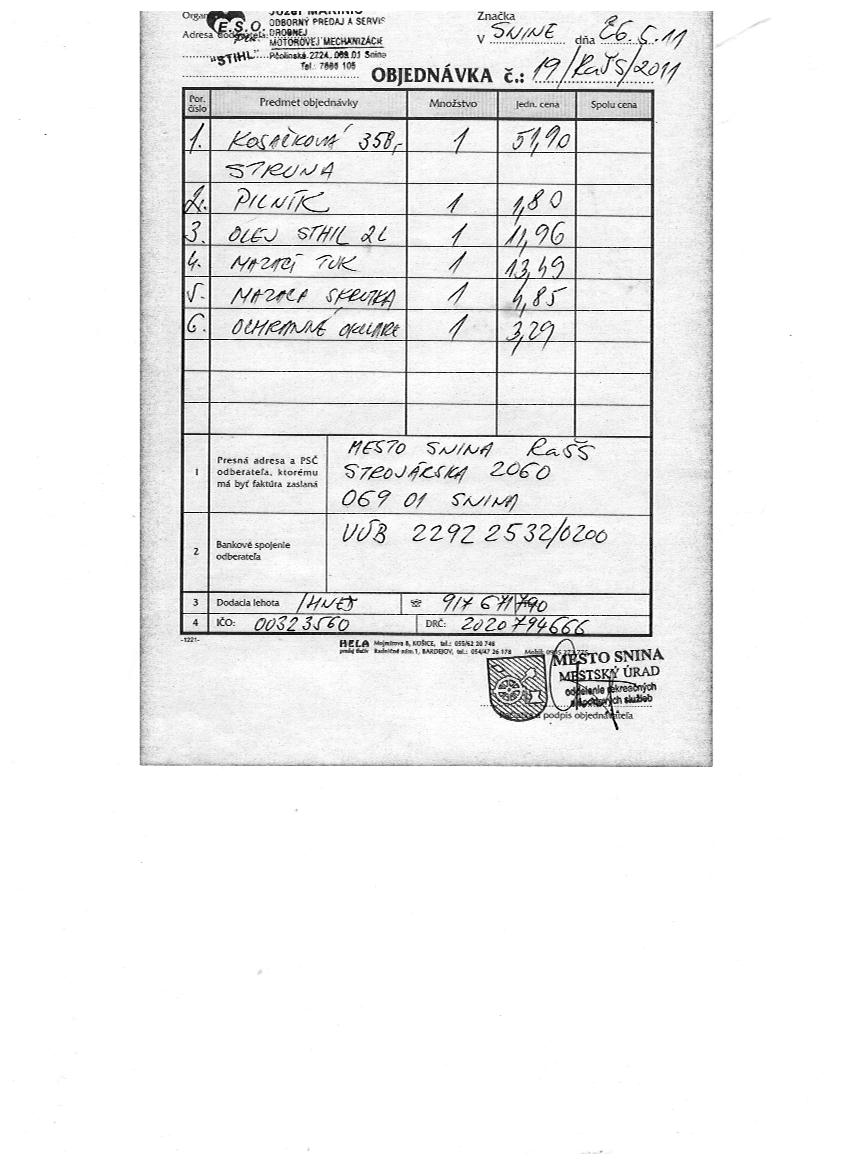 Značka
E.S.O. ODBORNÝ PREDAJ A SERVIS
DROBNEJ
MOTOROVEJ MECHANIZÁCIE
"STIHL" Pčolinská 2724, 069 01 Snina
Tel.: 7686 105
V SNINE dňa 26.5.11
OBJEDNÁVKA č.: 19/RaŠS/2011
Por. číslo Predmet objednávky Množstvo Jedn. cena Spolu cena
1. KOSAČKOVÁ 358,- 1 51,90
STRUNA
2. PILNÍK 1 1,80
3. OLEJ STHIL 2L 1 11,96
4. MAZACÍ TUK 1 13,49
5. MAZACA SKRUTKA 1 4,85
6. OCHRANNÉ OKULARE 1 3,29
1 Presná adresa a PSČ
odberateľa, ktorému
má byť faktúra zaslaná
MESTO SNINA RaŠS
STROJÁRSKA 2060
069 01 SNINA
2 Bankové spojenie
odberateľa
VÚB 2292 2532/0200
3 Dodacia lehota IHNEĎ ☎ 917 671 790
4 IČO: 00323560 DRČ: 2020794666
-1221-
HELA Mojmírova 8, KOŠICE, tel.: 055/62 20 748
predaj tlačív Radničné nám.1, BARDEJOV, tel.: 054/47 26 178
MESTO SNINA
MESTSKÝ ÚRAD
oddelenie rekreačných
a športových služieb
podpis objednávateľa